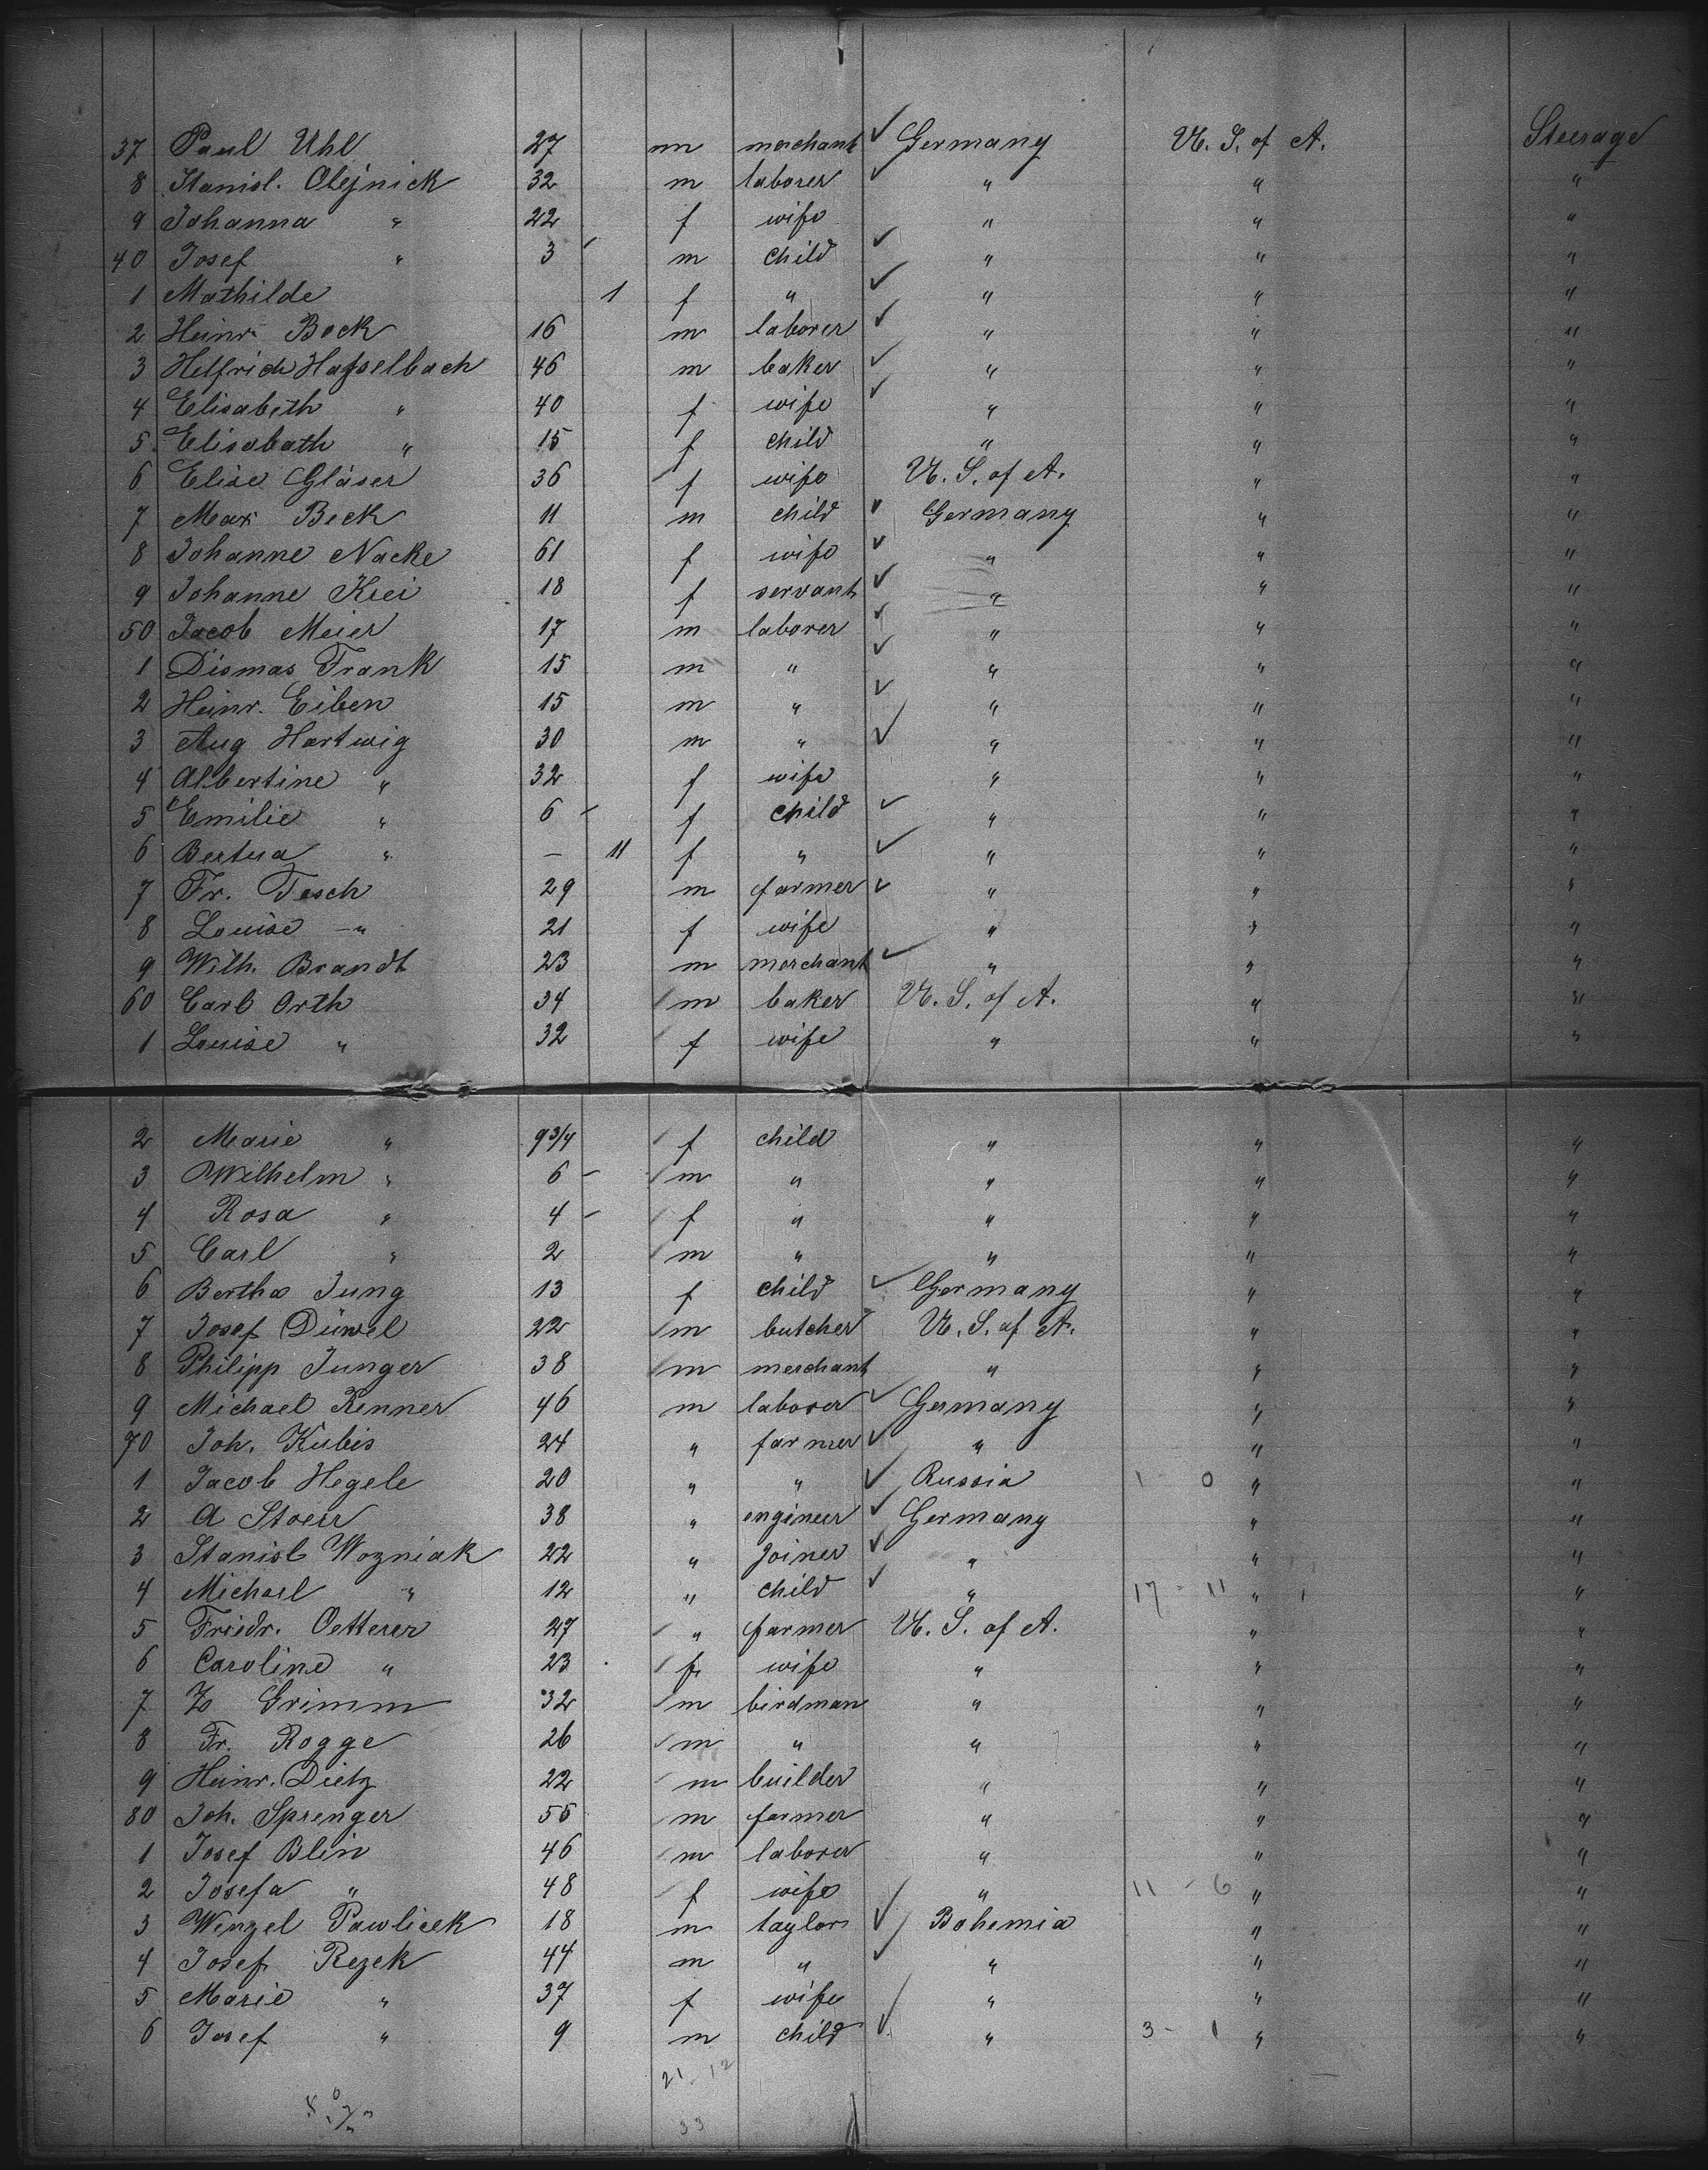 37 Paul Uhl 27 m merchant ✓ Germany U. S. of A. Steerage
8 Stanisl. Olejnick 32 m laborer ✓ " " "
9 Johanna " 22 f wife " " "
40 Josef " 3 m child ✓ " " "
1 Mathilde 1 f " ✓ " " "
2 Heinr. Bock 16 m laborer ✓ " " "
3 Helfrich Hasselbach 46 m baker ✓ " " "
4 Elisabeth " 40 f wife ✓ " " "
5 Elisabath " 15 f child " " "
6 Elise Gläser 36 f wife U. S. of A. " "
7 Max Beck 11 m child ✓ Germany " "
8 Johanne Nacke 61 f wife ✓ " " "
9 Johanne Krei 18 f servant ✓ " " "
50 Jacob Meier 17 m laborer ✓ " " "
1 Dismas Frank 15 m " ✓ " " "
2 Heinr. Eiben 15 m " ✓ " " "
3 Aug Hartwig 30 m " ✓ " " "
4 Albertine " 32 f wife " " "
5 Emilie " 6 f child ✓ " " "
6 Bertha " – 11 f " ✓ " " "
7 Fr. Tesch 29 m farmer ✓ " " "
8 Louise " 21 f wife " " "
9 Wilh. Brandt 23 m merchant ✓ " " "
60 Carl Orth 34 m baker U. S. of A. " "
1 Louise " 32 f wife " " "
2 Marie " 9 3/4 f child " " "
3 Wilhelm " 6 m " " " "
4 Rosa " 4 f " " " "
5 Carl " 2 m " " " "
6 Bertha Jung 13 f child ✓ Germany " "
7 Josef Düwel 22 m butcher U. S. of A. " "
8 Philipp Junger 38 m merchant " " "
9 Michael Renner 46 m laborer ✓ Germany " "
70 Joh. Kubis 24 " farmer ✓ " " "
1 Jacob Hegele 20 " " ✓ Russia 1 - 0 " "
2 A Stoerr 38 " engineer ✓ Germany " "
3 Stanisl Wozniak 22 " joiner ✓ " " "
4 Michael " 12 " child ✓ " 17 - 11 " "
5 Friedr. Oetterer 27 " farmer U. S. of A. " "
6 Caroline " 23 f wife " " "
7 Grimm 32 m birdman " " "
8 Fr. Rogge 26 m " " " "
9 Heinr. Dietz 22 m builder " " "
80 Joh. Sprenger 55 m farmer " " "
1 Josef Blin 46 m laborer " " "
2 Josefa " 48 f wife " 11 - 6 " "
3 Wenzel Pawlicek 18 m taylor ✓ Bohemia " "
4 Josef Rezek 44 m " ✓ " " "
5 Marie " 37 f wife " " "
6 Josef " 9 m child ✓ " 3 - 1 " "
21 - 12
33